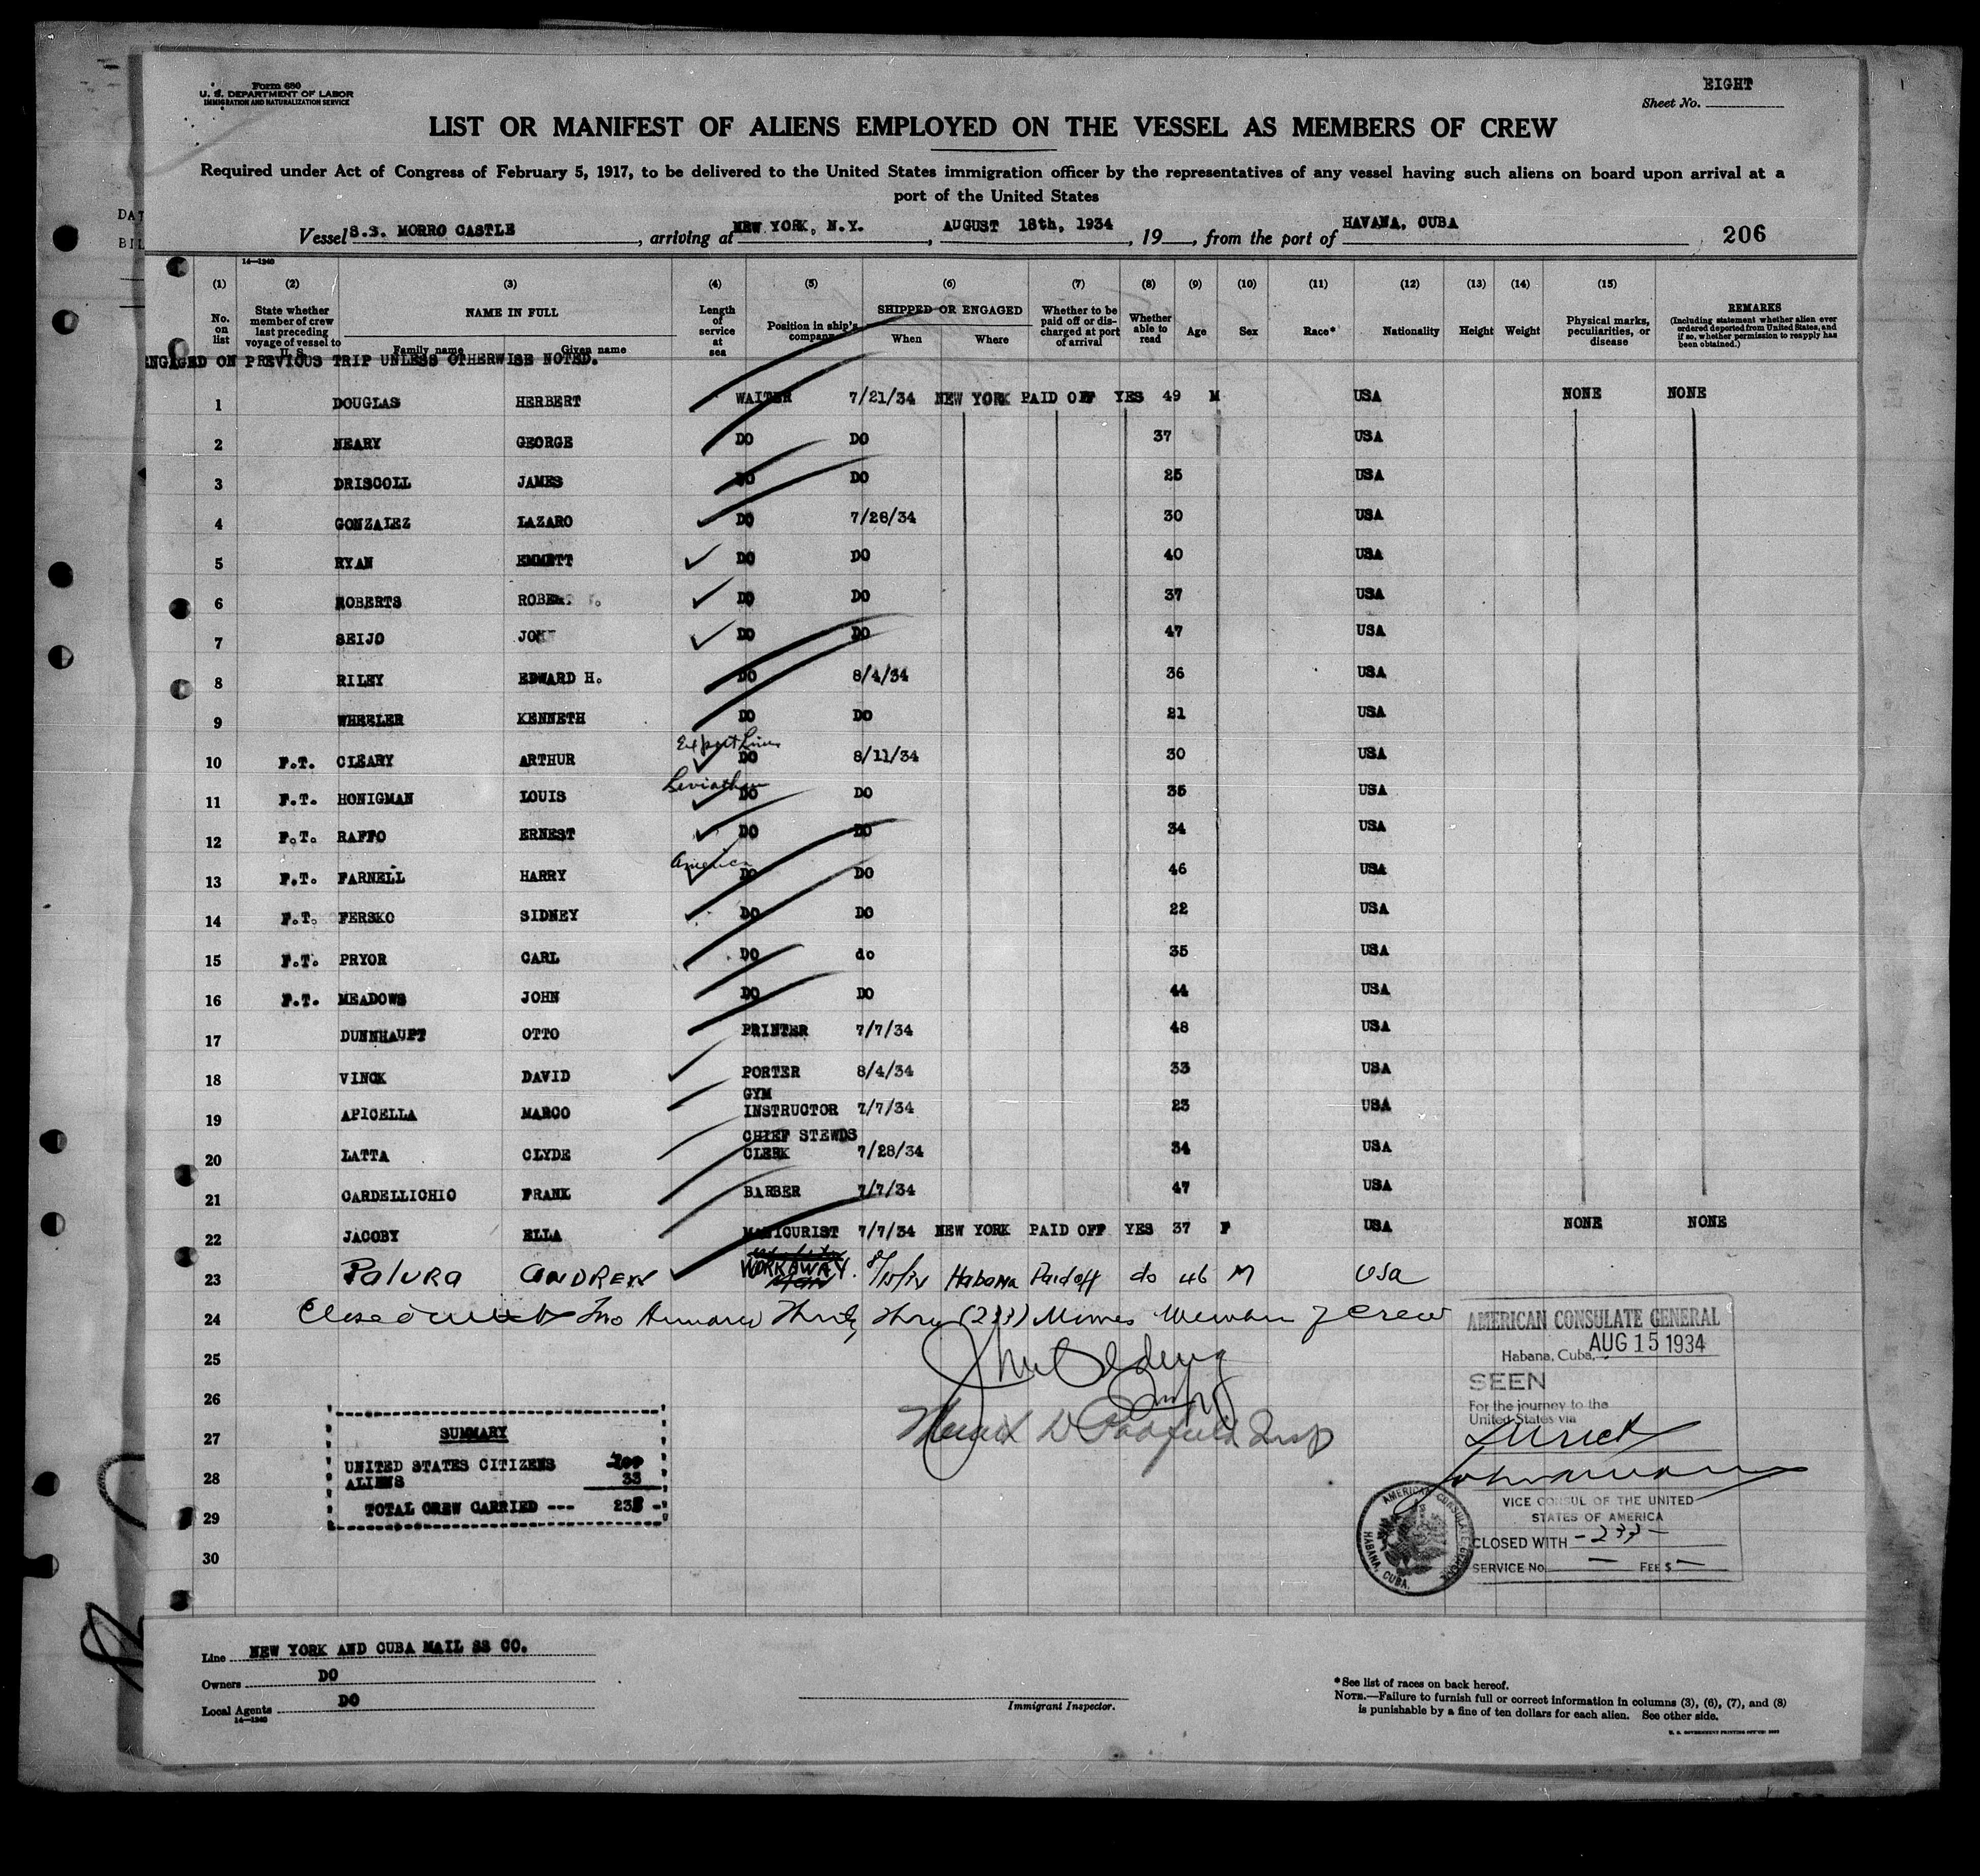 EIGHT
Form 680
U. S. DEPARTMENT OF LABOR
IMMIGRATION AND NATURALIZATION SERVICE
Sheet No.
LIST OR MANIFEST OF ALIENS EMPLOYED ON THE VESSEL AS MEMBERS OF CREW
Required under Act of Congress of February 5, 1917, to be delivered to the United States immigration officer by the representatives of any vessel having such aliens on board upon arrival at a
port of the United States
Vessel S.S. MORRO CASTLE, arriving at NEW YORK, N.Y., AUGUST 18th, 1934, 19, from the port of HAVANA, CUBA 206
DAT
BIL
14—1240
(1) (2) (3) (4) (5) (6) (7) (8) (9) (10) (11) (12) (13) (14) (15)
No. on list
State whether member of crew last preceding voyage of vessel to U. S.
NAME IN FULL
Family name Given name
Length of service at sea
Position in ship's company
SHIPPED OR ENGAGED
When Where
Whether to be paid off or discharged at port of arrival
Whether able to read
Age Sex Race* Nationality Height Weight
Physical marks, peculiarities, or disease
REMARKS
(Including statement whether alien ever ordered deported from United States, and if so, whether permission to reapply has been obtained.)
ENGAGED ON PREVIOUS TRIP UNLESS OTHERWISE NOTED.
1 DOUGLAS HERBERT WAITER 7/21/34 NEW YORK PAID OFF YES 49 M USA NONE NONE
2 NEARY GEORGE DO DO 37 USA
3 DRISCOLL JAMES DO DO 25 USA
4 GONZALEZ LAZARO DO 7/28/34 30 USA
5 RYAN EMMETT DO DO 40 USA
6 ROBERTS DO DO 37 USA
7 SEIJO DO DO 47 USA
8 RILEY EDWARD H. DO 8/4/34 36 USA
9 WHEELER KENNETH DO DO 21 USA
10 F.T. CLEARY ARTHUR Export Lines DO 8/11/34 30 USA
11 F.T. HONIGMAN LOUIS Leviathan DO DO 35 USA
12 F.T. RAFFO ERNEST DO DO 34 USA
13 F.T. FARNELL HARRY America DO DO 46 USA
14 F.T. FERSKO SIDNEY DO DO 22 USA
15 F.T. PRYOR CARL DO do 35 USA
16 F.T. MEADOWS JOHN DO DO 44 USA
17 DUNNHAUPT OTTO PRINTER 7/7/34 48 USA
18 VINCK DAVID PORTER 8/4/34 33 USA
19 APICELLA MARCO GYM INSTRUCTOR 7/7/34 23 USA
20 LATTA CLYDE CHIEF STEWDS CLERK 7/28/34 34 USA
21 CARDELLICHIO FRANK BARBER 7/7/34 47 USA
22 JACOBY ELLA MANICURIST 7/7/34 NEW YORK PAID OFF YES 37 F USA NONE NONE
23 Palura ANDREW WORKAWAY. 8/15/34 Habana Paid off do 46 M USA
24 Closed with Two Hundred Thirty Three (233) Names Members of Crew
25
26
27
28
29
30
SUMMARY
UNITED STATES CITIZENS 200
ALIENS 33
TOTAL CREW CARRIED ---
AMERICAN CONSULATE GENERAL
Habana, Cuba, AUG 15 1934
SEEN
For the journey to the
United States via
Direct
VICE CONSUL OF THE UNITED
STATES OF AMERICA
CLOSED WITH -233-
SERVICE No. — FEE $ —
AMERICAN CONSULATE GENERAL HABANA, CUBA.
Line NEW YORK AND CUBA MAIL SS CO.
Owners DO
Local Agents DO
14—1240
Immigrant Inspector.
*See list of races on back hereof.
NOTE.—Failure to furnish full or correct information in columns (3), (6), (7), and (8)
is punishable by a fine of ten dollars for each alien. See other side.